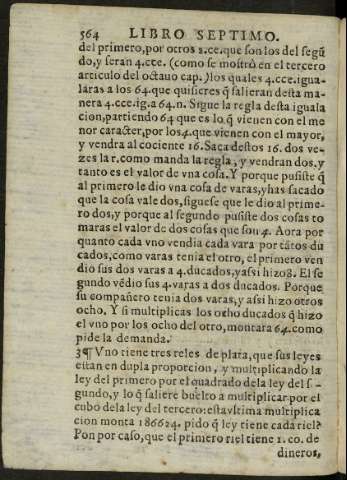 564 LIBRO SEPTIMO.
del primero, por otros 2.ce. que son los del segũ
do, y seran 4.cce. (como se mostrò en el tercero
articulo del octauo cap.) los quales 4.cce. igua-
laras a los 64. que quisieres q̃ salieran desta ma
nera 4.cce. ig. a 64.n. Sigue la regla desta iguala
cion, partiendo 64 que es lo q̃ vienen con el me
nor caracter, por los 4. que vienen con el mayor,
y vendra al cociente 16. Saca destos 16. dos ve-
zes la r. como manda la regla, y vendran dos, y
tanto es el valor de vna cosa. Y porque pusiste q̃
al primero le dio vna cosa de varas, y has sacado
que la cosa vale dos, siguese que le dio al prime-
ro dos, y porque al segundo pusiste dos cosas to
maras el valor de dos cosas que son 4. Aora por
quanto cada vno vendia cada vara por tãtos du
cados, como varas tenia el otro, el primero ven
dio sus dos varas a 4. ducados, y assi hizo 8. El se
gundo vẽdio sus 4. varas a dos ducados. Porque
su compañero tenia dos varas, y assi hizo otros
ocho. Y si multiplicas los ocho ducados q̃ hizo
el vno por los ocho del otro, montara 64. como
pide la demanda.
3 ¶ Vno tiene tres reles de plata, que sus leyes
estan en dupla proporcion, y multiplicando la
ley del primero por el quadrado de la ley del se-
gundo, y lo q̃ saliere buelto a multiplicar por el
cubo de la ley del tercero: esta vltima multiplica
cion monta 186624. pido q̃ ley tiene cada riel?
Pon por caso, que el primero riel tiene 1. co. de
dineros,